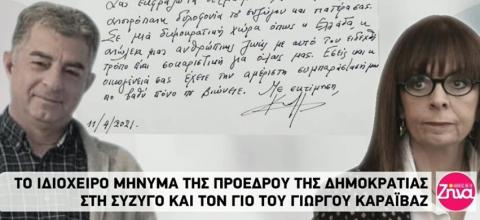 Σας εκφράζω τα
αποτρόπαιη δολοφονία του συζύγου και πατέρα σας.
Σε μια δημοκρατική χώρα όπως η Ελλάδα η
απώλεια μιας ανθρώπινης ζωής με αυτό τον ειδεχθή
τρόπο είναι σοκαριστική για όλους μας. Εσείς και η
οικογένειά σας έχετε την αμέριστη συμπαράστασή μου
στο βαθύ πόνο που βιώνετε.
Με εκτίμηση,
11/4/2021.
Ζηνα
ΤΟ ΙΔΙΟΧΕΙΡΟ ΜΗΝΥΜΑ ΤΗΣ ΠΡΟΕΔΡΟΥ ΤΗΣ ΔΗΜΟΚΡΑΤΙΑΣ
ΣΤΗ ΣΥΖΥΓΟ ΚΑΙ ΤΟΝ ΓΙΟ ΤΟΥ ΓΙΩΡΓΟΥ ΚΑΡΑΪΒΑΖ